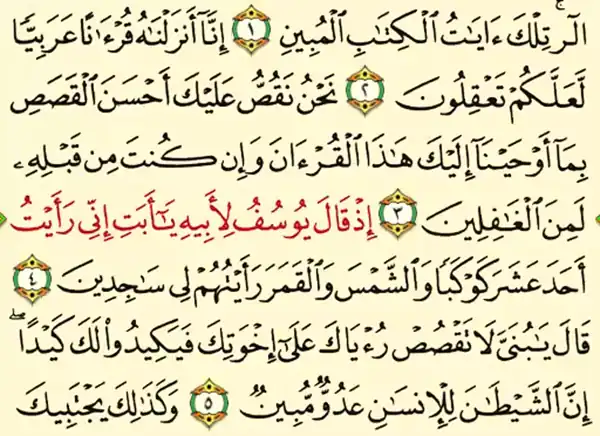 الٓر ۚ تِلۡكَ ءَايَٰتُ ٱلۡكِتَٰبِ ٱلۡمُبِينِ ١ إِنَّآ أَنزَلۡنَٰهُ قُرۡءَٰنًا عَرَبِيّٗا
لَّعَلَّكُمۡ تَعۡقِلُونَ ٢ نَحۡنُ نَقُصُّ عَلَيۡكَ أَحۡسَنَ ٱلۡقَصَصِ
بِمَآ أَوۡحَيۡنَآ إِلَيۡكَ هَٰذَا ٱلۡقُرۡءَانَ وَإِن كُنتَ مِن قَبۡلِهِۦ
لَمِنَ ٱلۡغَٰفِلِينَ ٣ إِذۡ قَالَ يُوسُفُ لِأَبِيهِ يَٰٓأَبَتِ إِنِّي رَأَيۡتُ
أَحَدَ عَشَرَ كَوۡكَبٗا وَٱلشَّمۡسَ وَٱلۡقَمَرَ رَأَيۡتُهُمۡ لِي سَٰجِدِينَ ٤
قَالَ يَٰبُنَيَّ لَا تَقۡصُصۡ رُءۡيَاكَ عَلَىٰٓ إِخۡوَتِكَ فَيَكِيدُواْ لَكَ كَيۡدًاۖ
إِنَّ ٱلشَّيۡطَٰنَ لِلۡإِنسَٰنِ عَدُوّٞ مُّبِينٞ ٥ وَكَذَٰلِكَ يَجۡتَبِيكَ